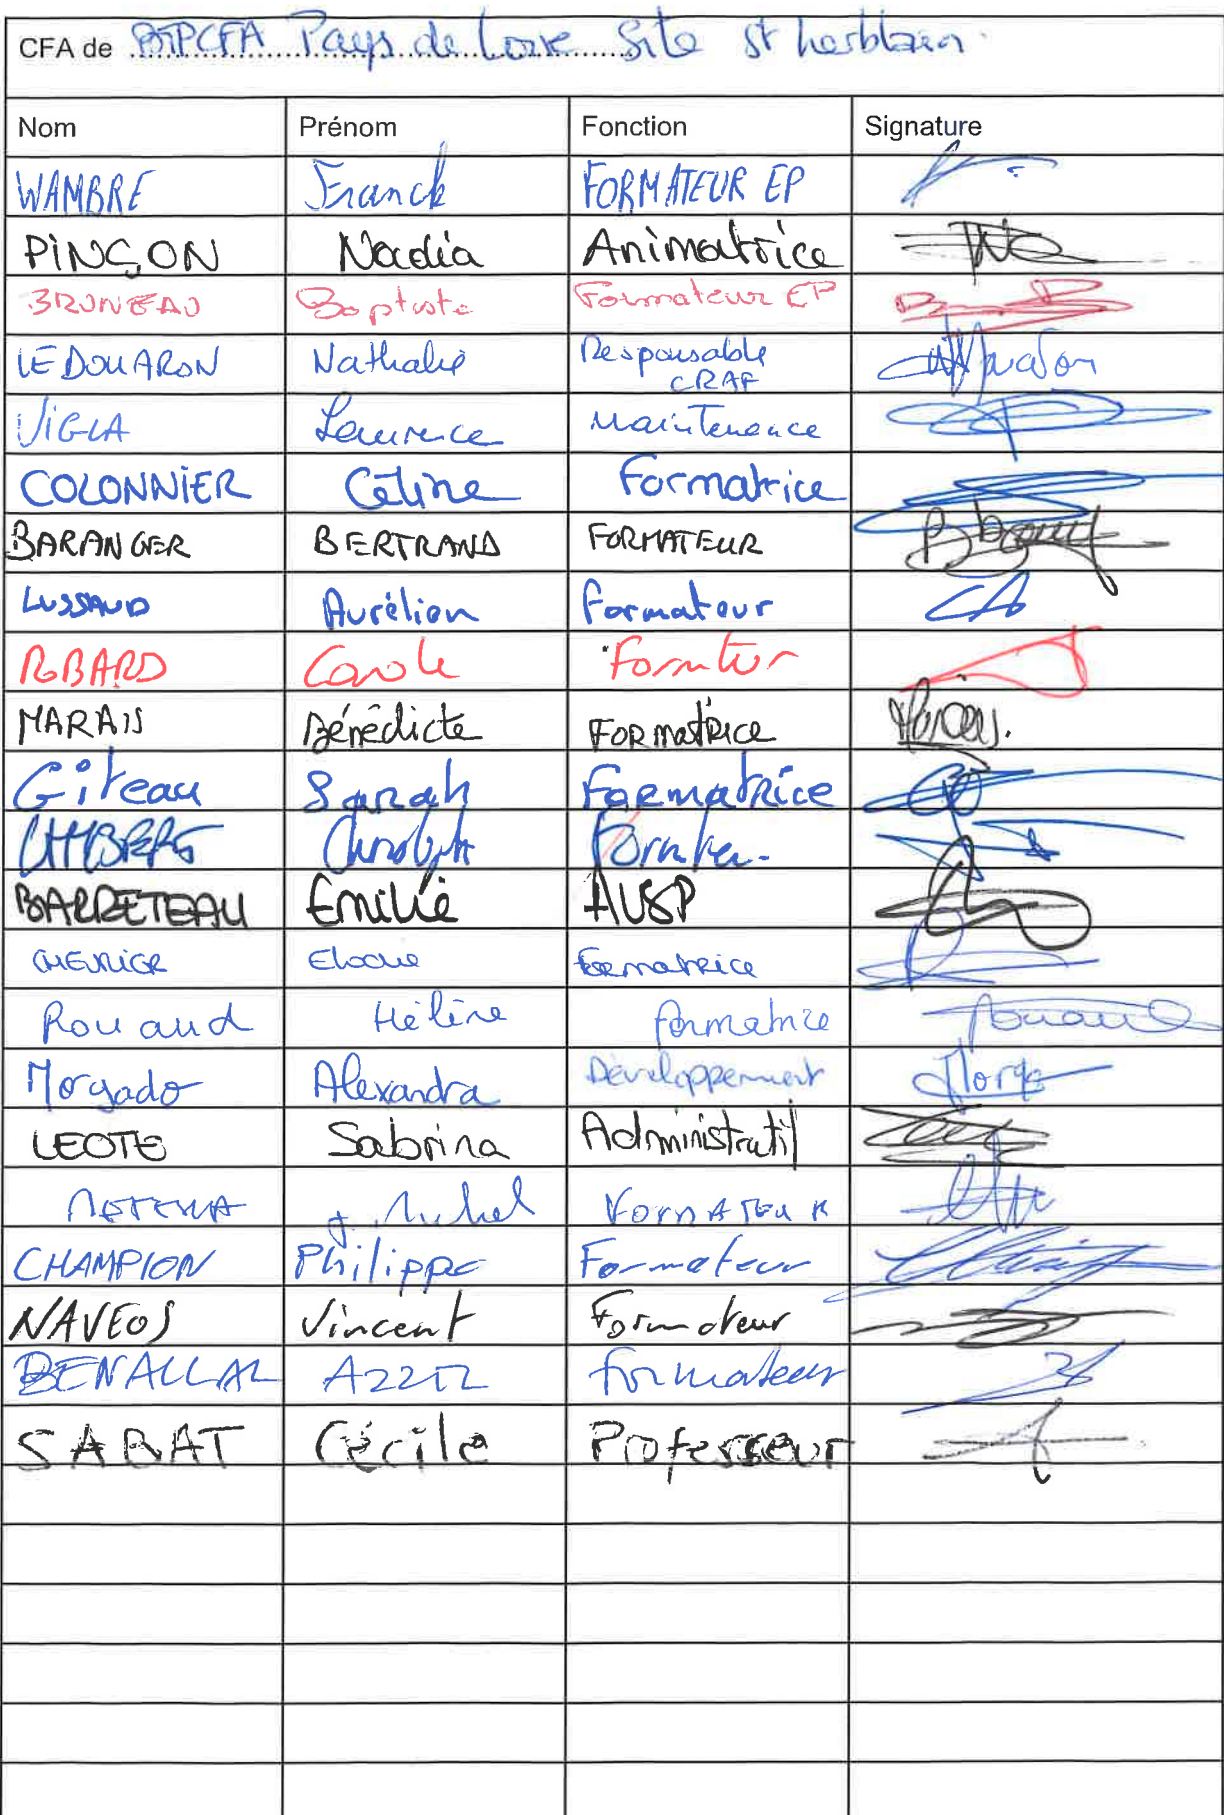 CFA de BTPCFA Pays de Loire Site St herblain.
Nom Prénom Fonction Signature
WAMBRE Franck FORMATEUR EP
PINÇON Nadia Animatrice
BRUNEAU Baptiste Formateur EP
LE DOUARON Nathalie Responsable
CRAF
VIGLA Laurence Maintenance
COLONNIER Céline Formatrice
BARANGER BERTRAND FORMATEUR
LUSSAUD Aurélien Formateur
ROBARD Carole
MARAIS Bénédicte FORMATRICE
Giteau Sarah Formatrice
BARRETEAU Emilie AUSP
Elodie Formatrice
Rouaud Hélène formatrice
Morgado Alexandra Développement
LEOTE Sabrina Administratif
Michel FORMATEUR
CHAMPION Philippe Formateur
NAVEOS Vincent Formateur
BENALLAL AZZIZ formateur
SABAT Cécile Professeur